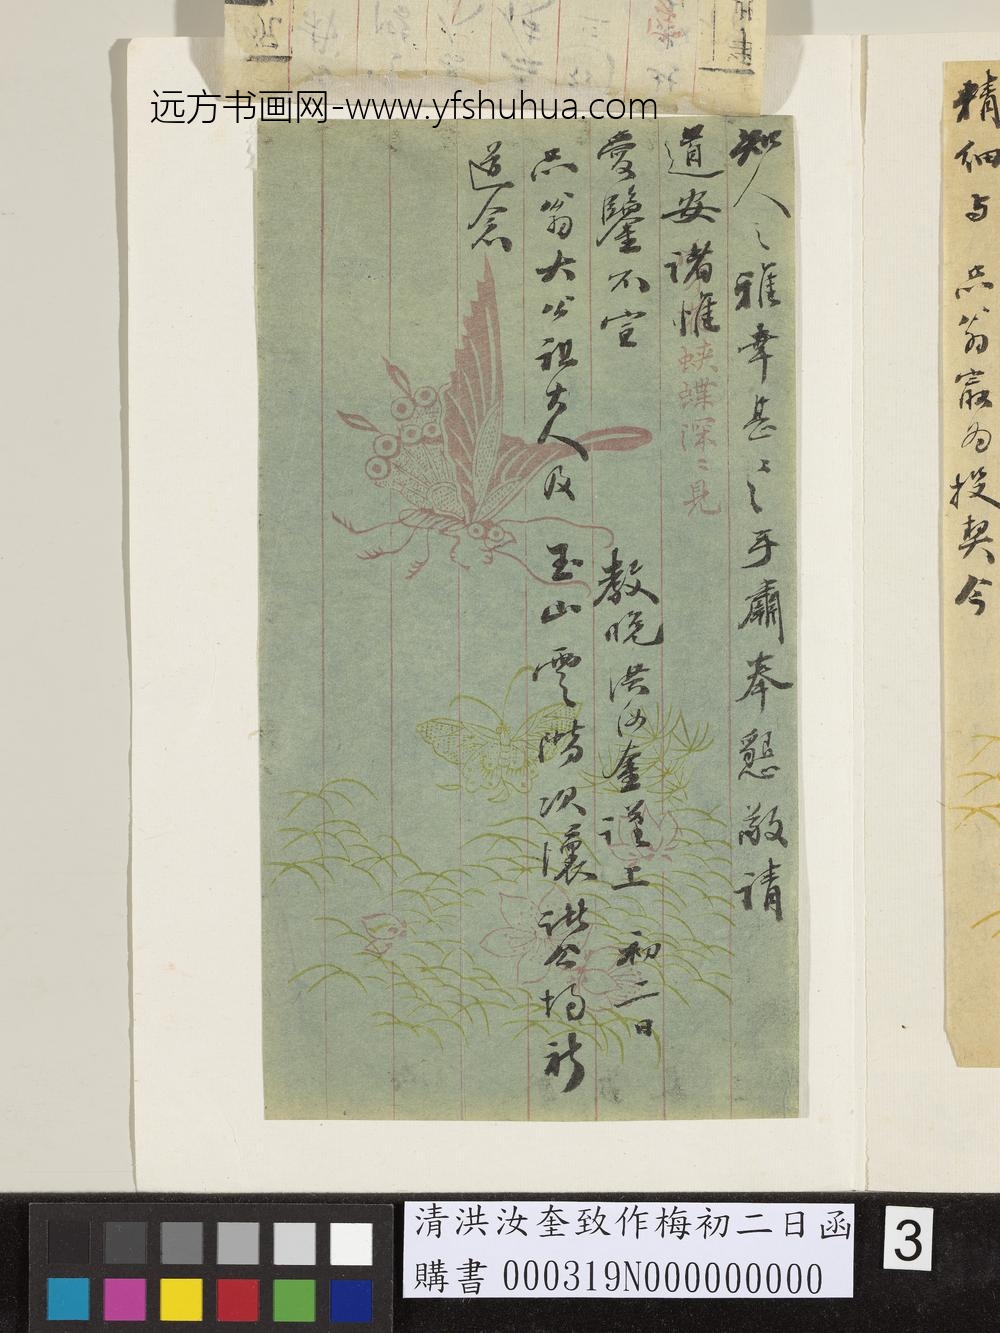 远方书画网-www.yfshuhua.com
知人之雅幸甚幸甚手肅奉懇敬請
道安諸惟
愛鑒不宣
教晚洪汝奎謹上 初二日
翁大公祖大人及 玉山雲階次瀼諸公均祈
道念
蛺蝶深深見
精細与 翁最為投契今
清洪汝奎致作梅初二日函
購書 000319N000000000
3